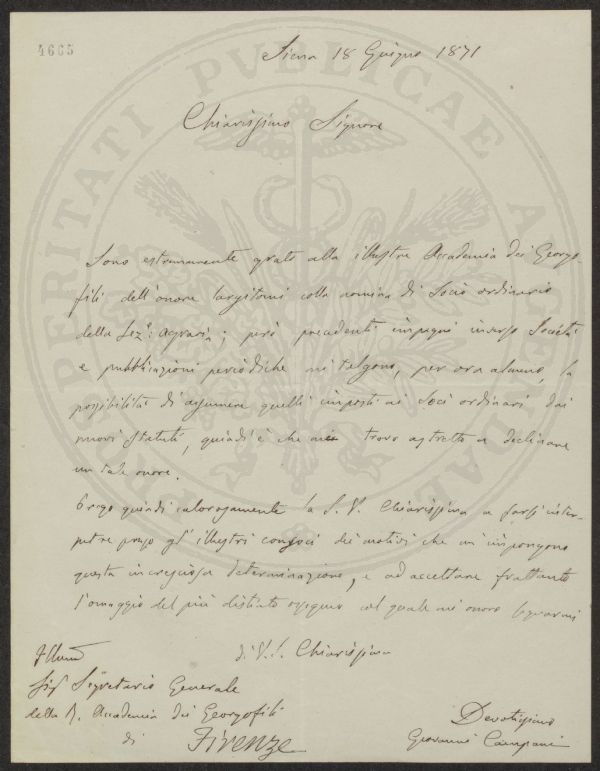 4665
Siena 18 Giugno 1871
Chiarissimo Signore
Sono estremamente grato alla illustre Accademia dei Georgo-
fili dell'onore largitomi colla nomina di Socio ordinario
della Sez.e agraria; però precedenti impegni inverso Società
e pubblicazioni periodiche mi tolgono, per ora almeno, la
possibilità di assumere quelli imposti ai Soci ordinari dai
nuovi Statuti, quindi è che mi trovo astretto a declinare
un tale onore.
Prego quindi calorosamente la S. V. Chiarissima a farsi inter-
petre presso gl'illustri consoci dei motivi che m'impongono
questa incresciosa determinazione, e ad accettare frattanto
l'omaggio del più distinto ossequio col quale mi onoro segnarmi
di V. S. Chiarissima
Illmo
Sig. Segretario Generale
della R. Accademia dei Georgofili
di Firenze
Devotissimo
Giovanni Campani
PERITATI PUBLICAE